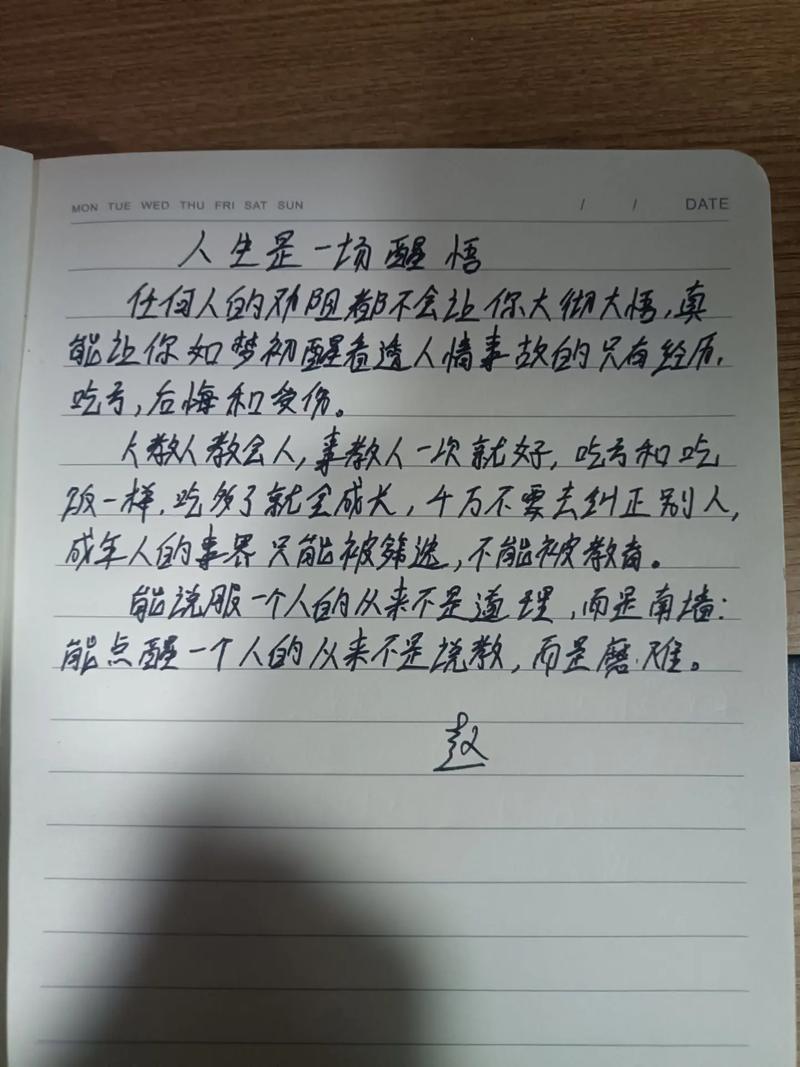 MON TUE WED THU FRI SAT SUN / / DATE
人生是一场醒悟
任何人的劝阻都不会让你大彻大悟,真
能让你如梦初醒看透人情事故的只有经历,
吃亏,后悔和受伤。
人教人教会人,事教人一次就好,吃亏和吃
饭一样,吃多了就会成长,千万不要去纠正别人,
成年人的事界只能被筛选,不能被教育。
能说服一个人的从来不是道理,而是南墙:
能点醒一个人的从来不是说教,而是磨难。
赵